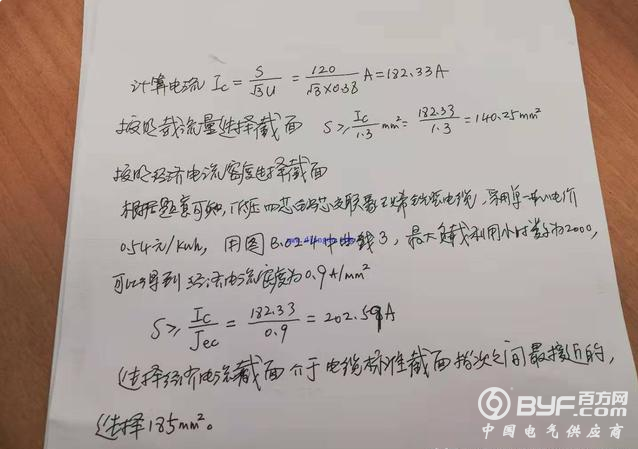 计算电流 Ic = S/√3U = 120/√3×0.38 A = 182.33A
按照载流量选择截面 S ≥ Ic/1.3 mm² = 182.33/1.3 = 140.25mm²
按照经济电流密度选择截面
根据题意可知,低压四芯
交联聚乙烯绝缘电缆,采用单一制电价
0.54元/kwh, 用图B.0.2-4中曲线3, 最大负载利用小时数为2000,
可以得到经济电流密度为0.9A/mm²
S ≥ Ic/Jec = 182.33/0.9 = 202.59A
选择经济电流截面介于电缆标准截面档次之间最接近的,
选择185mm²。
BYF.com 百方网
中国电气供应商